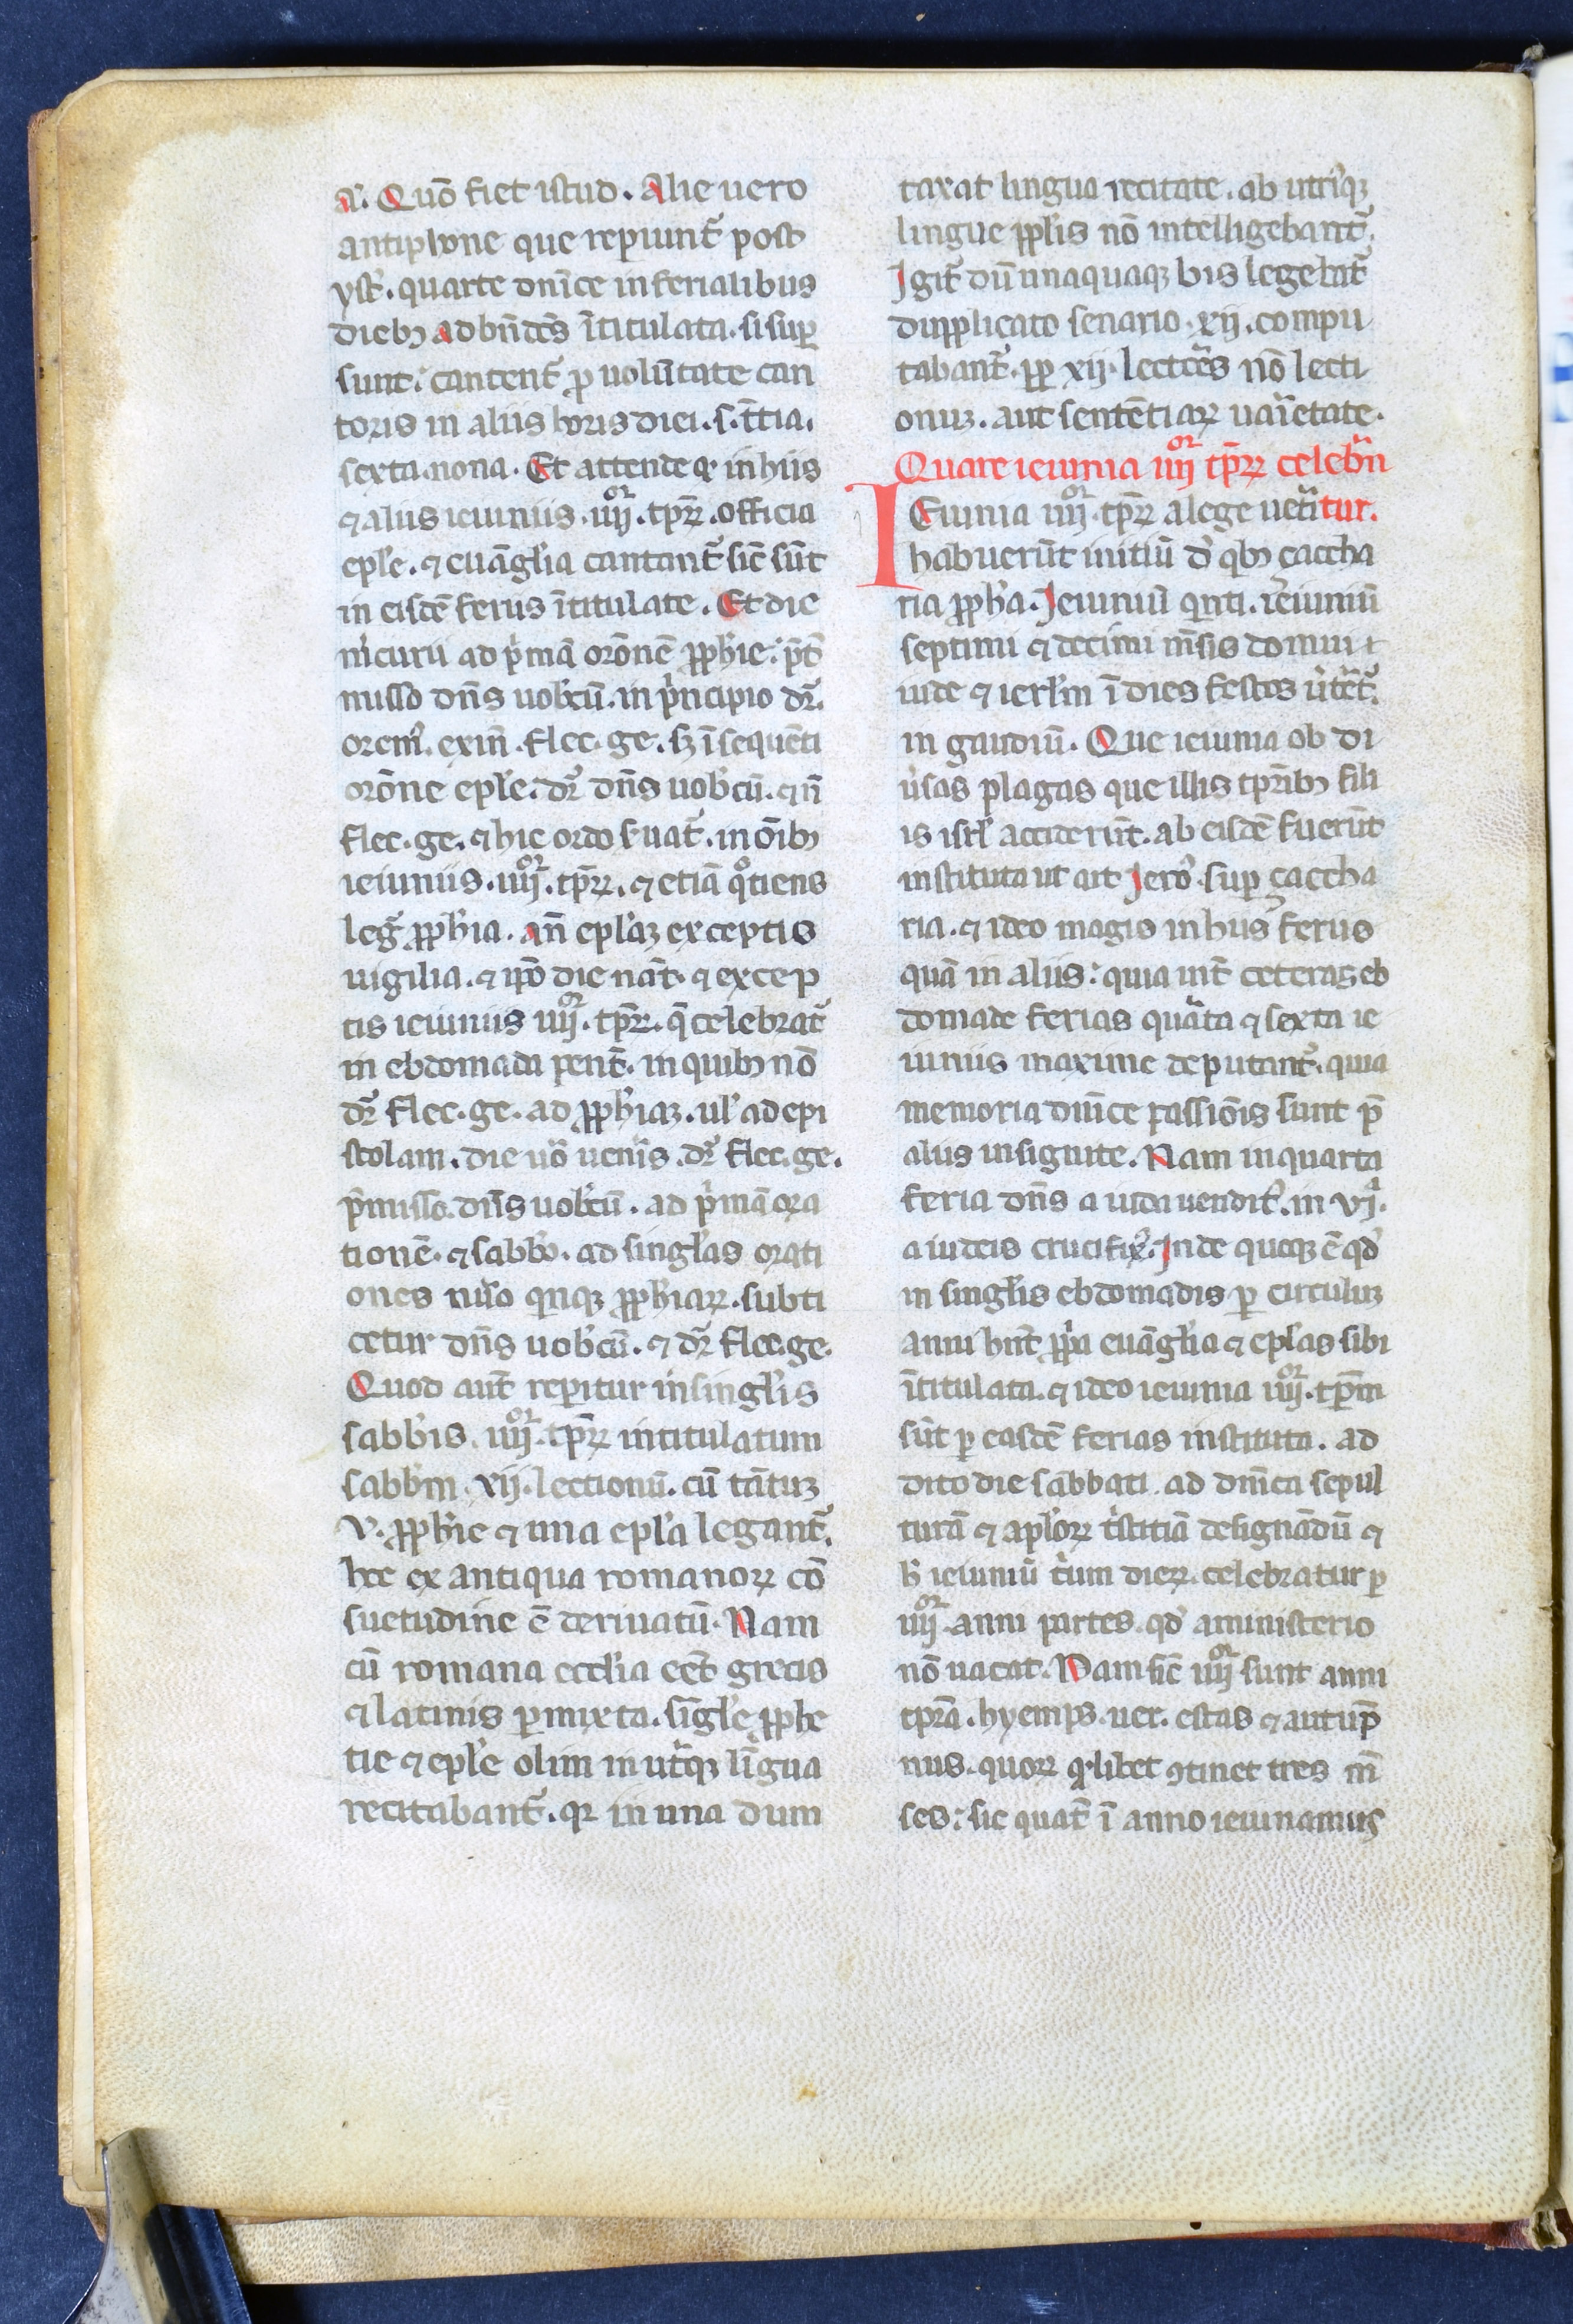 a᷒. Quō fiet istud. Alie uero
antiphone que repiunt᷒ post
yst᷒. quarte dnīce in ferialibus
dieb; ad bn̄dcēs ītitulata. si sup
sunt: cantent᷒ p uolūtate can
toris in aliis horis diei. s. t̄tia.
sexta. nona. Et attende qr in hiis
⁊ aliis ieiuniis. iiijor. tp̄rꝝ. officia
eple. ⁊ euāglia cantant᷒ sic̄ sūt
in eisdē feriis ītitulate. Et die
m̓curii ad pͥmā orōnē ꝓphīe: p̄t
misso dn̄s uobcū. in pͥncipio dr̄.
orem᷒. exin̄. flec. ge. sꝫ ī sequēti
orōne eple. dr̄ dn̄s uobcū. ⁊ n̄
flec. ge. ⁊ hic ordo s̓uat᷒. in ōib;
ieiuniis. iiijor. tp̄rꝝ. ⁊ etiā qͦtiens
leg᷒ ꝓphia. an̄ eplaꝫ exceptis
uigilia. ⁊ ip̄o die nat̄. ⁊ excep
tis ieiuniis iiijor. tp̄rꝝ. q̄ celebrat᷒
in ebdomada pent̄. in quib; nō
dr̄ flec. ge. ad ꝓphiaꝫ. ul̓ ad epi
stolam. die uͦo uenͥis. dr̄ flec. ge.
pͥmisso. dn̄s uobcū. ad pͥmā ora
tionē. ⁊ sabbo. ad singl̓as orati
ones nu̓o qͥnqꝫ ꝓphiaꝝ. subti
cetur dn̄s uobcū. ⁊ dr̄ flec. ge.
Quod aut̄ repitur in singl̓is
sabbis. iiijor. tp̄rꝝ intitulatum
sabbm. xij. lectionū. cū tātuꝫ
v. ꝓphīe ⁊ una epl̓a legant᷒.
hec ex antiqua romanoꝝ cō
suetudine ē deriuatū. Nam
cū romana eccl̓ia eēt grecis
⁊ latinis pmixta. sīgl̓e ꝓphe
tie ⁊ epl̓e olim in utͣqꝫ līgua
recitabant᷒. qr in una dum
taxat lingua recitate. ab utrͥqꝫ
lingue ppl̓is nō intelligebant᷒.
Igit᷒ dū unaquaqꝫ bis legebat᷒
dupplicato senario. xij. compu
tabant᷒. ꝓp xij. lectōrēs nō lecti
onuꝫ. aut sentētiaꝝ uarͥetate.
Quare ieiunia iiijor tp̄rꝝ celebrͣn
IEiunia iiijor. tp̄rꝝ a lege uet̓i tur.
habuerūt initiū d̓ qͥb; çaccha
ria ꝓpha. Ieiuniū qͣrti. ieiuniū
septimi ⁊ decimi m̄sis domui
iude ⁊ ierl̓m ī dies festos u̓tet᷒.
in gaudiū. Que ieiunia ob di
u̓sas plagas que illis tp̄rib; fili
is isrl̓ acciderūt. ab eisdē fuerūt
instituta ut ait Ierōͦ. sup çaccha
ria. ⁊ ideo magis in hiis feriis
quā in aliis: quia int̄ ceteras eb
domade ferias quarta ⁊ sexta ie
iuniis maxime deputant᷒. quia
memoria dnīce passiōis sunt p̄
aliis insignite. Nam in quarta
feria dn̄s a iuda uendit᷒. in vj.
a iudeis crucifix᷒. Inde quoqꝫ ē qd̓
in singl̓is ebdomadis p circuluꝫ
anni hn̄t ꝓpͥa euāgl̓ia ⁊ epl̓as sibi
ītitulata. ⁊ ideo ieiunia iiijor. tp̄m
sūt p easdē ferias instituta. ad
dito die sabbati. ad dnīca sepul
turā ⁊ apl̓oꝝ tͥstitiā designādū ⁊
h̓ ieiuniū tͥum dieꝝ. celebratur p
iiijor. anni partes. qd̓ a ministerio
nō uacat. Nam sic̄ iiijor sunt anni
tp̄ra. hyemps. uer. estas ⁊ autūp
nus. quoꝝ qͥlibet ꝯtinet tres m̄
ses: sic quat᷒ ī anno ieiunamus